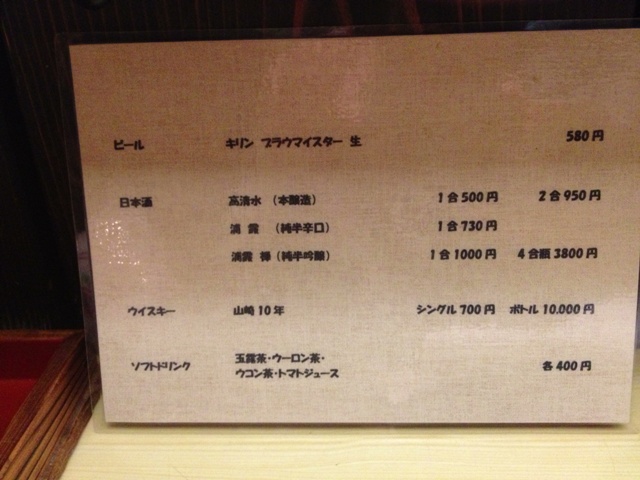 ビール キリン ブラウマイスター 生 580円
日本酒 高清水 (本醸造) 1合500円 2合950円
滴露 (純米辛口) 1合730円
滴露 禅 (純米吟醸) 1合1000円 4合瓶3800円
ウイスキー 山崎10年 シングル700円 ボトル10.000円
ソフトドリンク 玉露茶・ウーロン茶・
ウコン茶・トマトジュース 各400円